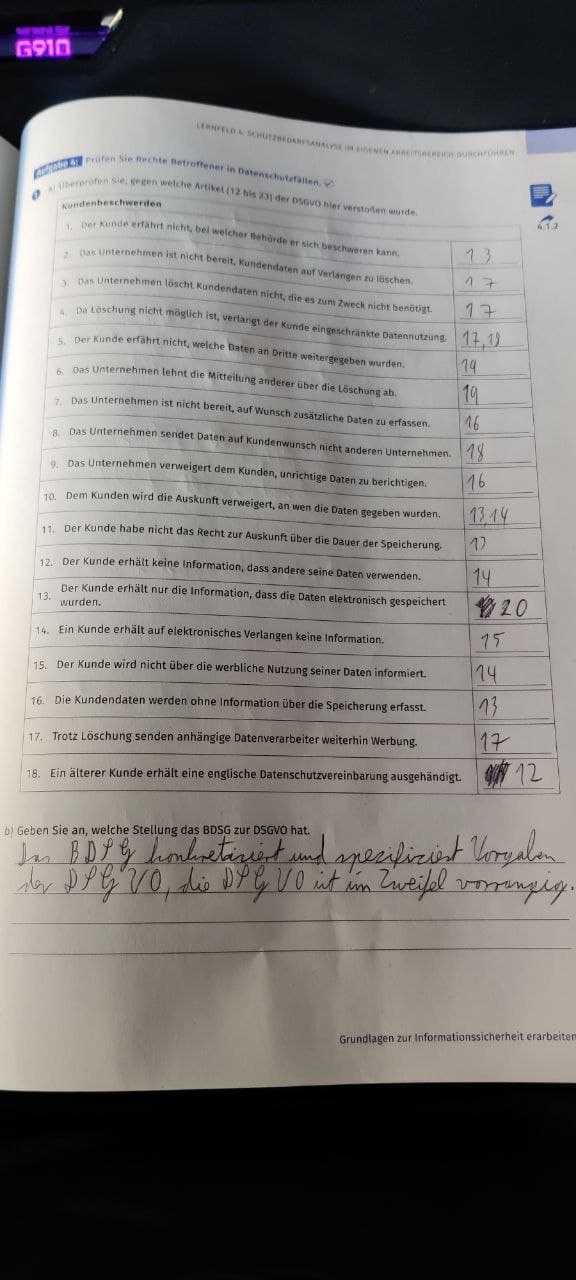 G910
LERNFELD 4: SCHUTZBEDARFSANALYSE IM EIGENEN ARBEITSBEREICH DURCHFÜHREN
Aufgabe 4: Prüfen Sie Rechte Betroffener in Datenschutzfällen.
a) Überprüfen Sie, gegen welche Artikel (12 bis 23) der DSGVO hier verstoßen wurde.
4.1.2
Kundenbeschwerden
1. Der Kunde erfährt nicht, bei welcher Behörde er sich beschweren kann. 13
2. Das Unternehmen ist nicht bereit, Kundendaten auf Verlangen zu löschen. 17
3. Das Unternehmen löscht Kundendaten nicht, die es zum Zweck nicht benötigt. 17
4. Da Löschung nicht möglich ist, verlangt der Kunde eingeschränkte Datennutzung. 17,18
5. Der Kunde erfährt nicht, welche Daten an Dritte weitergegeben wurden. 14
6. Das Unternehmen lehnt die Mitteilung anderer über die Löschung ab. 19
7. Das Unternehmen ist nicht bereit, auf Wunsch zusätzliche Daten zu erfassen. 16
8. Das Unternehmen sendet Daten auf Kundenwunsch nicht anderen Unternehmen. 18
9. Das Unternehmen verweigert dem Kunden, unrichtige Daten zu berichtigen. 16
10. Dem Kunden wird die Auskunft verweigert, an wen die Daten gegeben wurden. 13,14
11. Der Kunde habe nicht das Recht zur Auskunft über die Dauer der Speicherung. 13
12. Der Kunde erhält keine Information, dass andere seine Daten verwenden. 14
13. Der Kunde erhält nur die Information, dass die Daten elektronisch gespeichert
wurden. 20
14. Ein Kunde erhält auf elektronisches Verlangen keine Information. 15
15. Der Kunde wird nicht über die werbliche Nutzung seiner Daten informiert. 14
16. Die Kundendaten werden ohne Information über die Speicherung erfasst. 13
17. Trotz Löschung senden anhängige Datenverarbeiter weiterhin Werbung. 17
18. Ein älterer Kunde erhält eine englische Datenschutzvereinbarung ausgehändigt. 12
b) Geben Sie an, welche Stellung das BDSG zur DSGVO hat.
Das BDSG konkretisiert und spezifiziert Vorgaben
der DSGVO, die DSGVO ist im Zweifel vorrangig.
Grundlagen zur Informationssicherheit erarbeiten